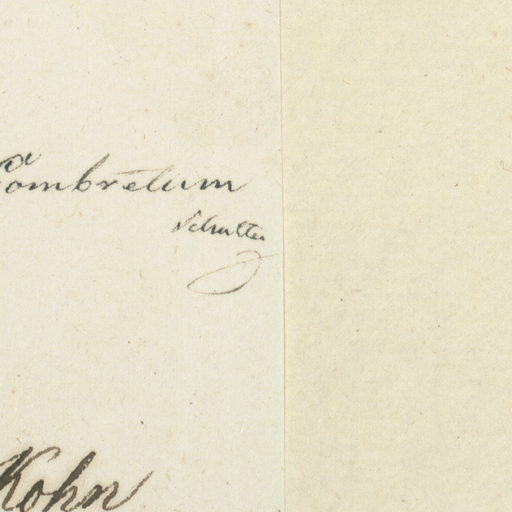 Combretum
Schultes
Kohn